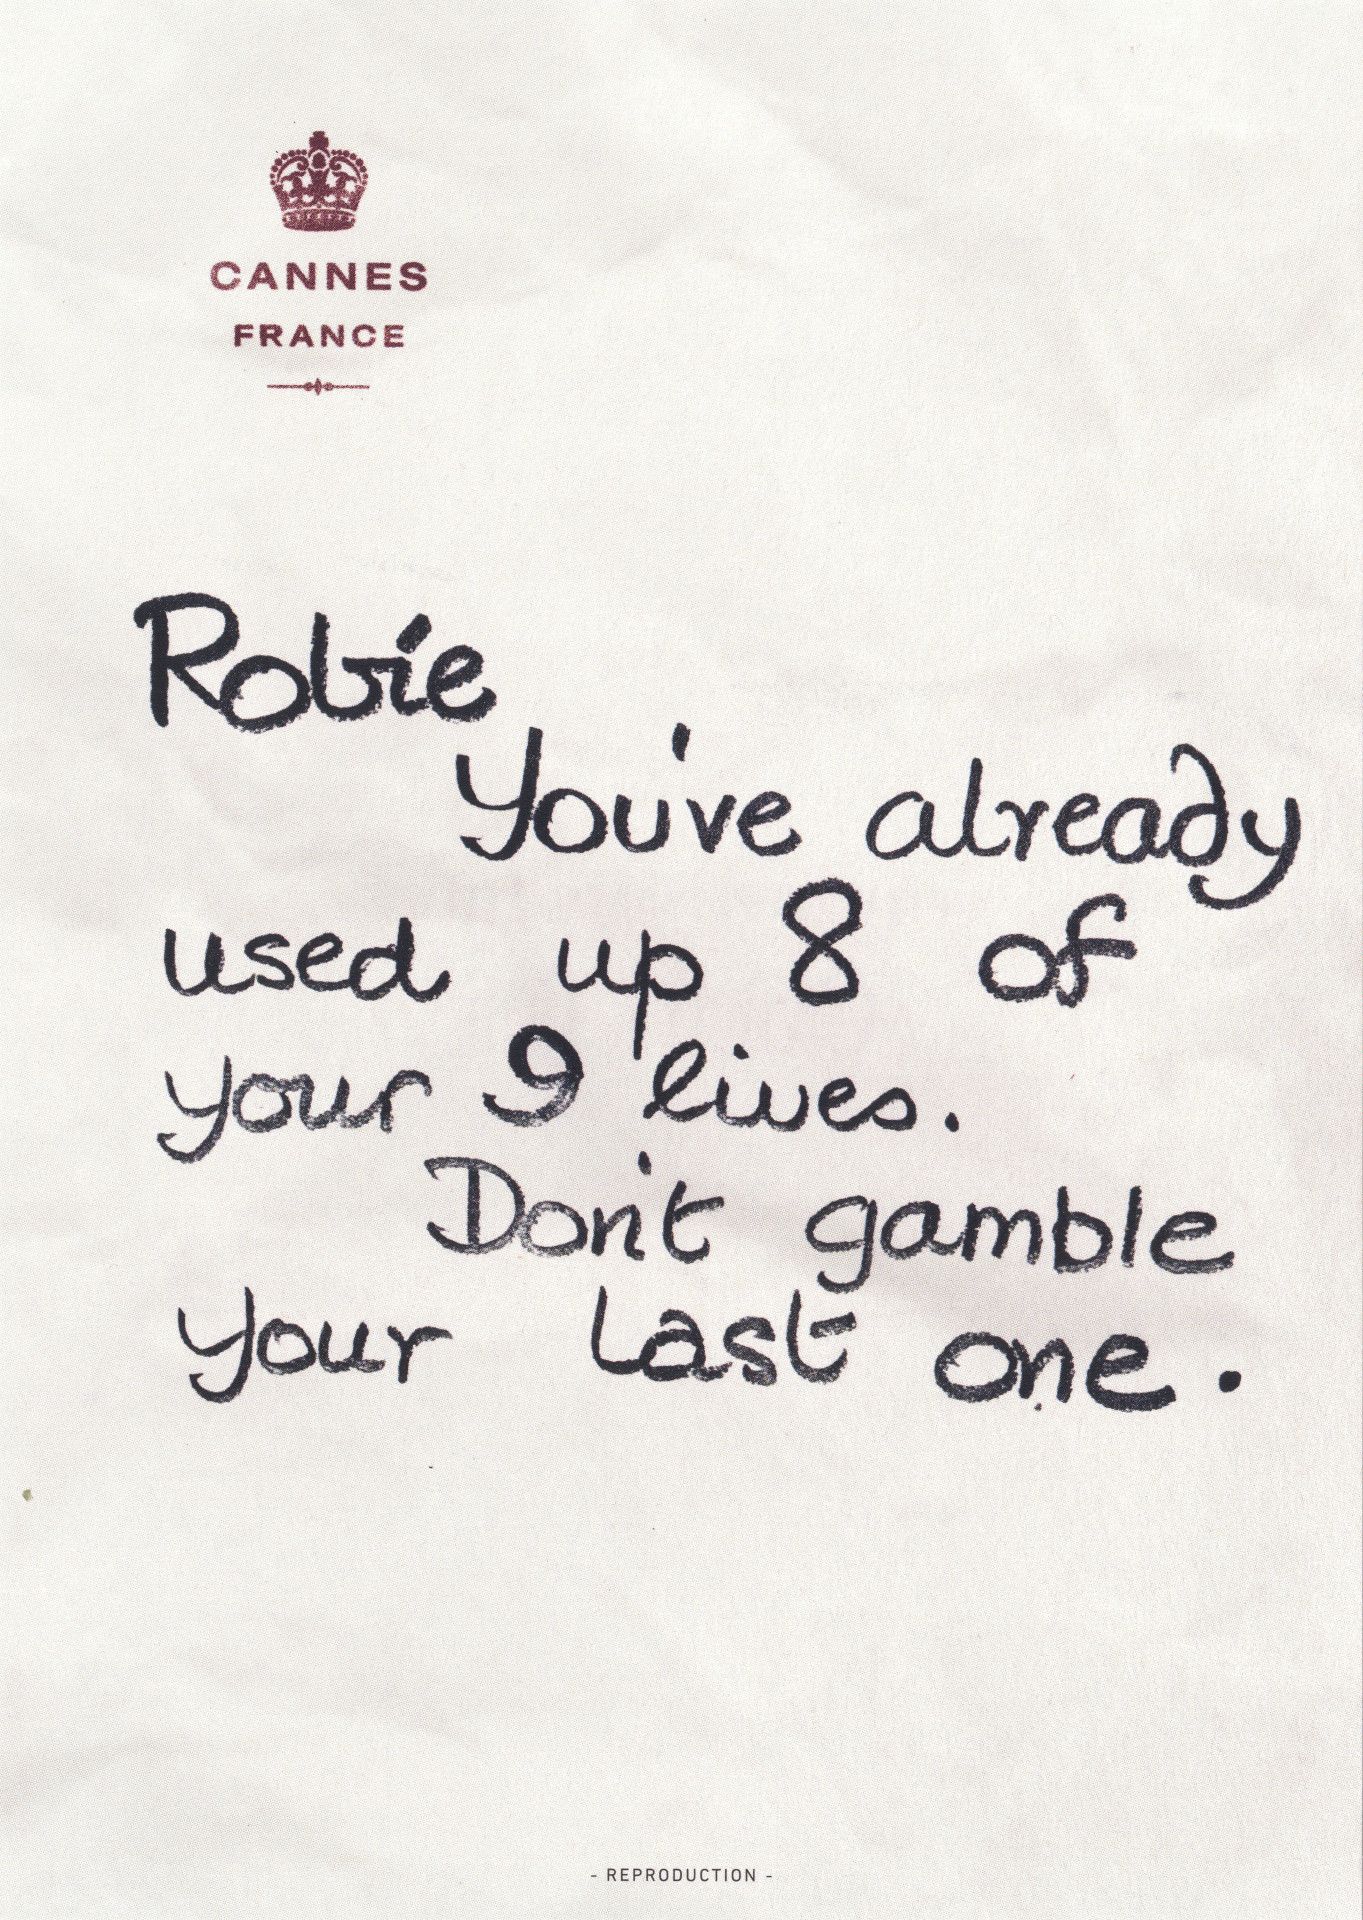 CANNES
FRANCE
Robie
You've already
used up 8 of
your 9 lives.
Don't gamble
your last one.
- REPRODUCTION -